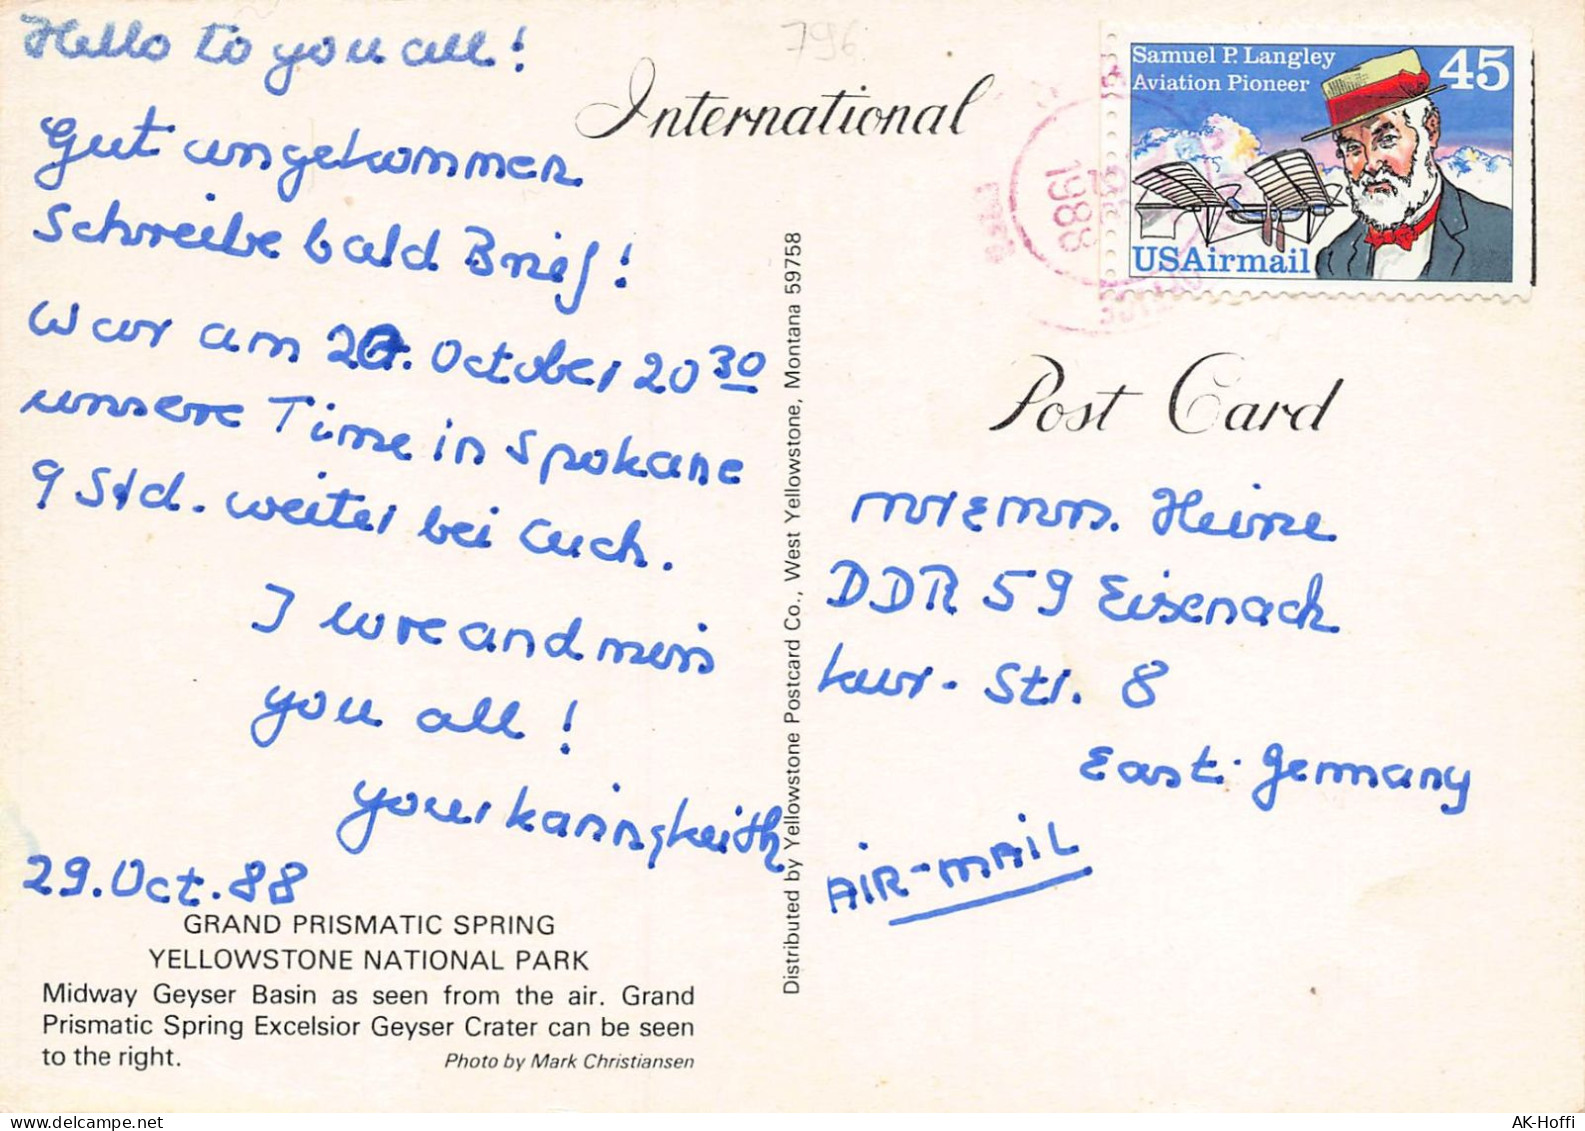 Hello to you all!
Gut angekommen
Schreibe bald Brief!
War am 26. October 20 30
unsere Time in Spokane
9 Std. weiter bei Euch.
I love and miss
you all!
your Karin & Keith
29. Oct. 88
GRAND PRISMATIC SPRING
YELLOWSTONE NATIONAL PARK
Midway Geyser Basin as seen from the air. Grand
Prismatic Spring Excelsior Geyser Crater can be seen
to the right.
Photo by Mark Christiansen
Distributed by Yellowstone Postcard Co., West Yellowstone, Montana 59758
796
International
Post Card
Samuel P. Langley
Aviation Pioneer
45
USAirmail
1988
Mr & Mrs. Heine
DDR 59 Eisenach
Str. 8
East-Germany
AIR-MAIL
AK-Hoffi / www.delcampe.net